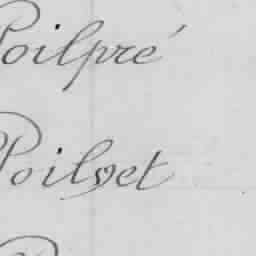 Poilpré
Poilvet